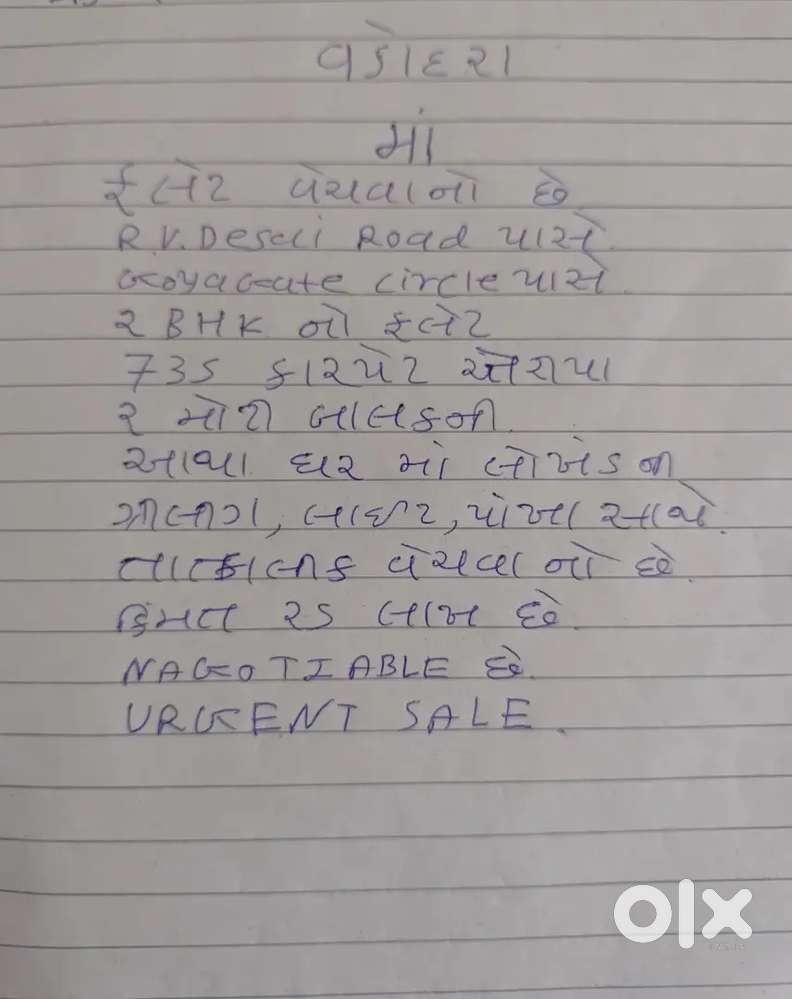 વડોદરા
માં
ફલેટ વેચવાનો છે.
R.V. Desai Road પાસે.
Goyagate circle પાસે.
૨ BHK નો ફલેટ
735 કારપેટ એરીયા
૨ મોટી બાલકની.
આખા ઘર માં લોખંડ ની
ગ્રીલ, લાઈટ, પંખા સાથે.
તાત્કાલીક વેચવા નો છે.
કિંમત ૨૬ લાખ છે.
NAGOTIABLE છે.
URGENT SALE.
olx